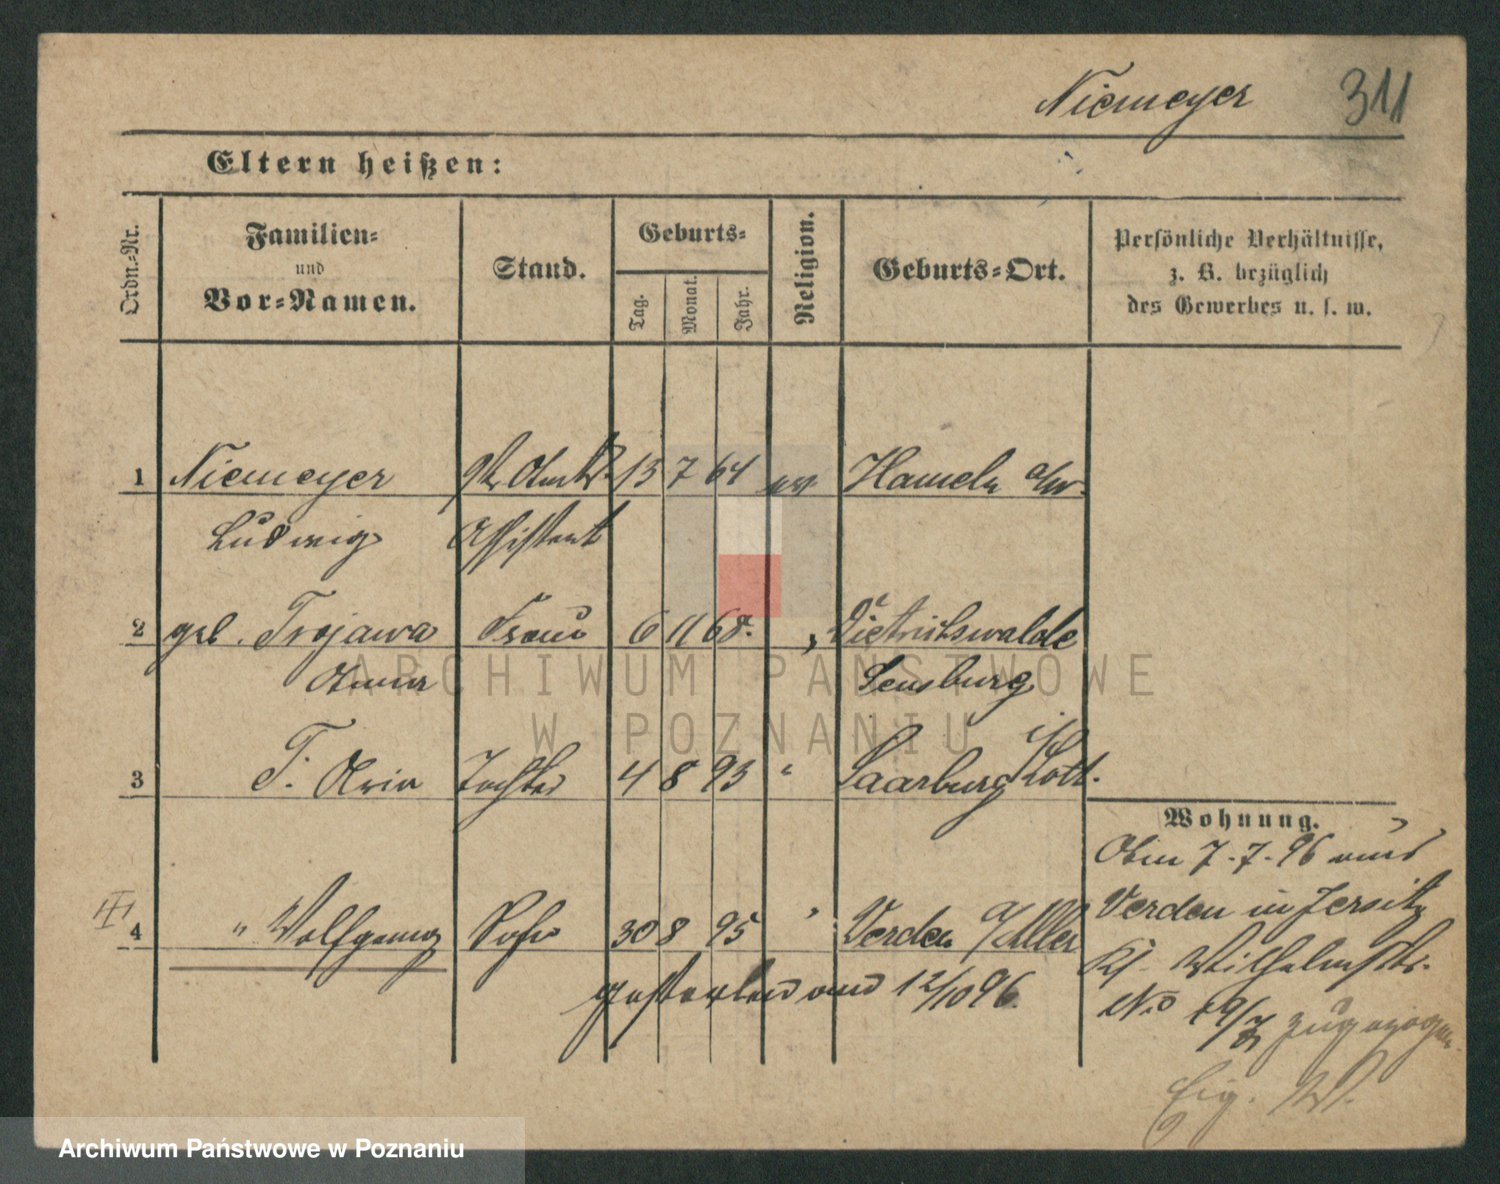 Niemeyer 311
Eltern heißen:
Ordn.-Nr.
Familien-
und
Vor-Namen.
Stand.
Geburts-
Tag.
Monat.
Jahr.
Religion.
Geburts-Ort.
Persönliche Verhältnisse,
z. B. bezüglich
des Gewerbes u. s. w.
1 Niemeyer 15 7 64 ev Hameln a/W.
Ludwig Assistent
2 geb. Trojawa Frau 6 11 68. " Dietrichswalde
Anna Sensburg
3 T. Tochter 4 8 93 " Saarburg i/Loth.
Wohnung.
7.7.96 aus
4 " Wolfgang Sohn 30 8 95 " Verden a/Aller
Verden in Jersitz
gestorben am 12/10 96.
Kl. Wilhelmstr.
No 19/ zugezogen
Eig. W.
ARCHIWUM PAŃSTWOWE
W POZNANIU
Archiwum Państwowe w Poznaniu